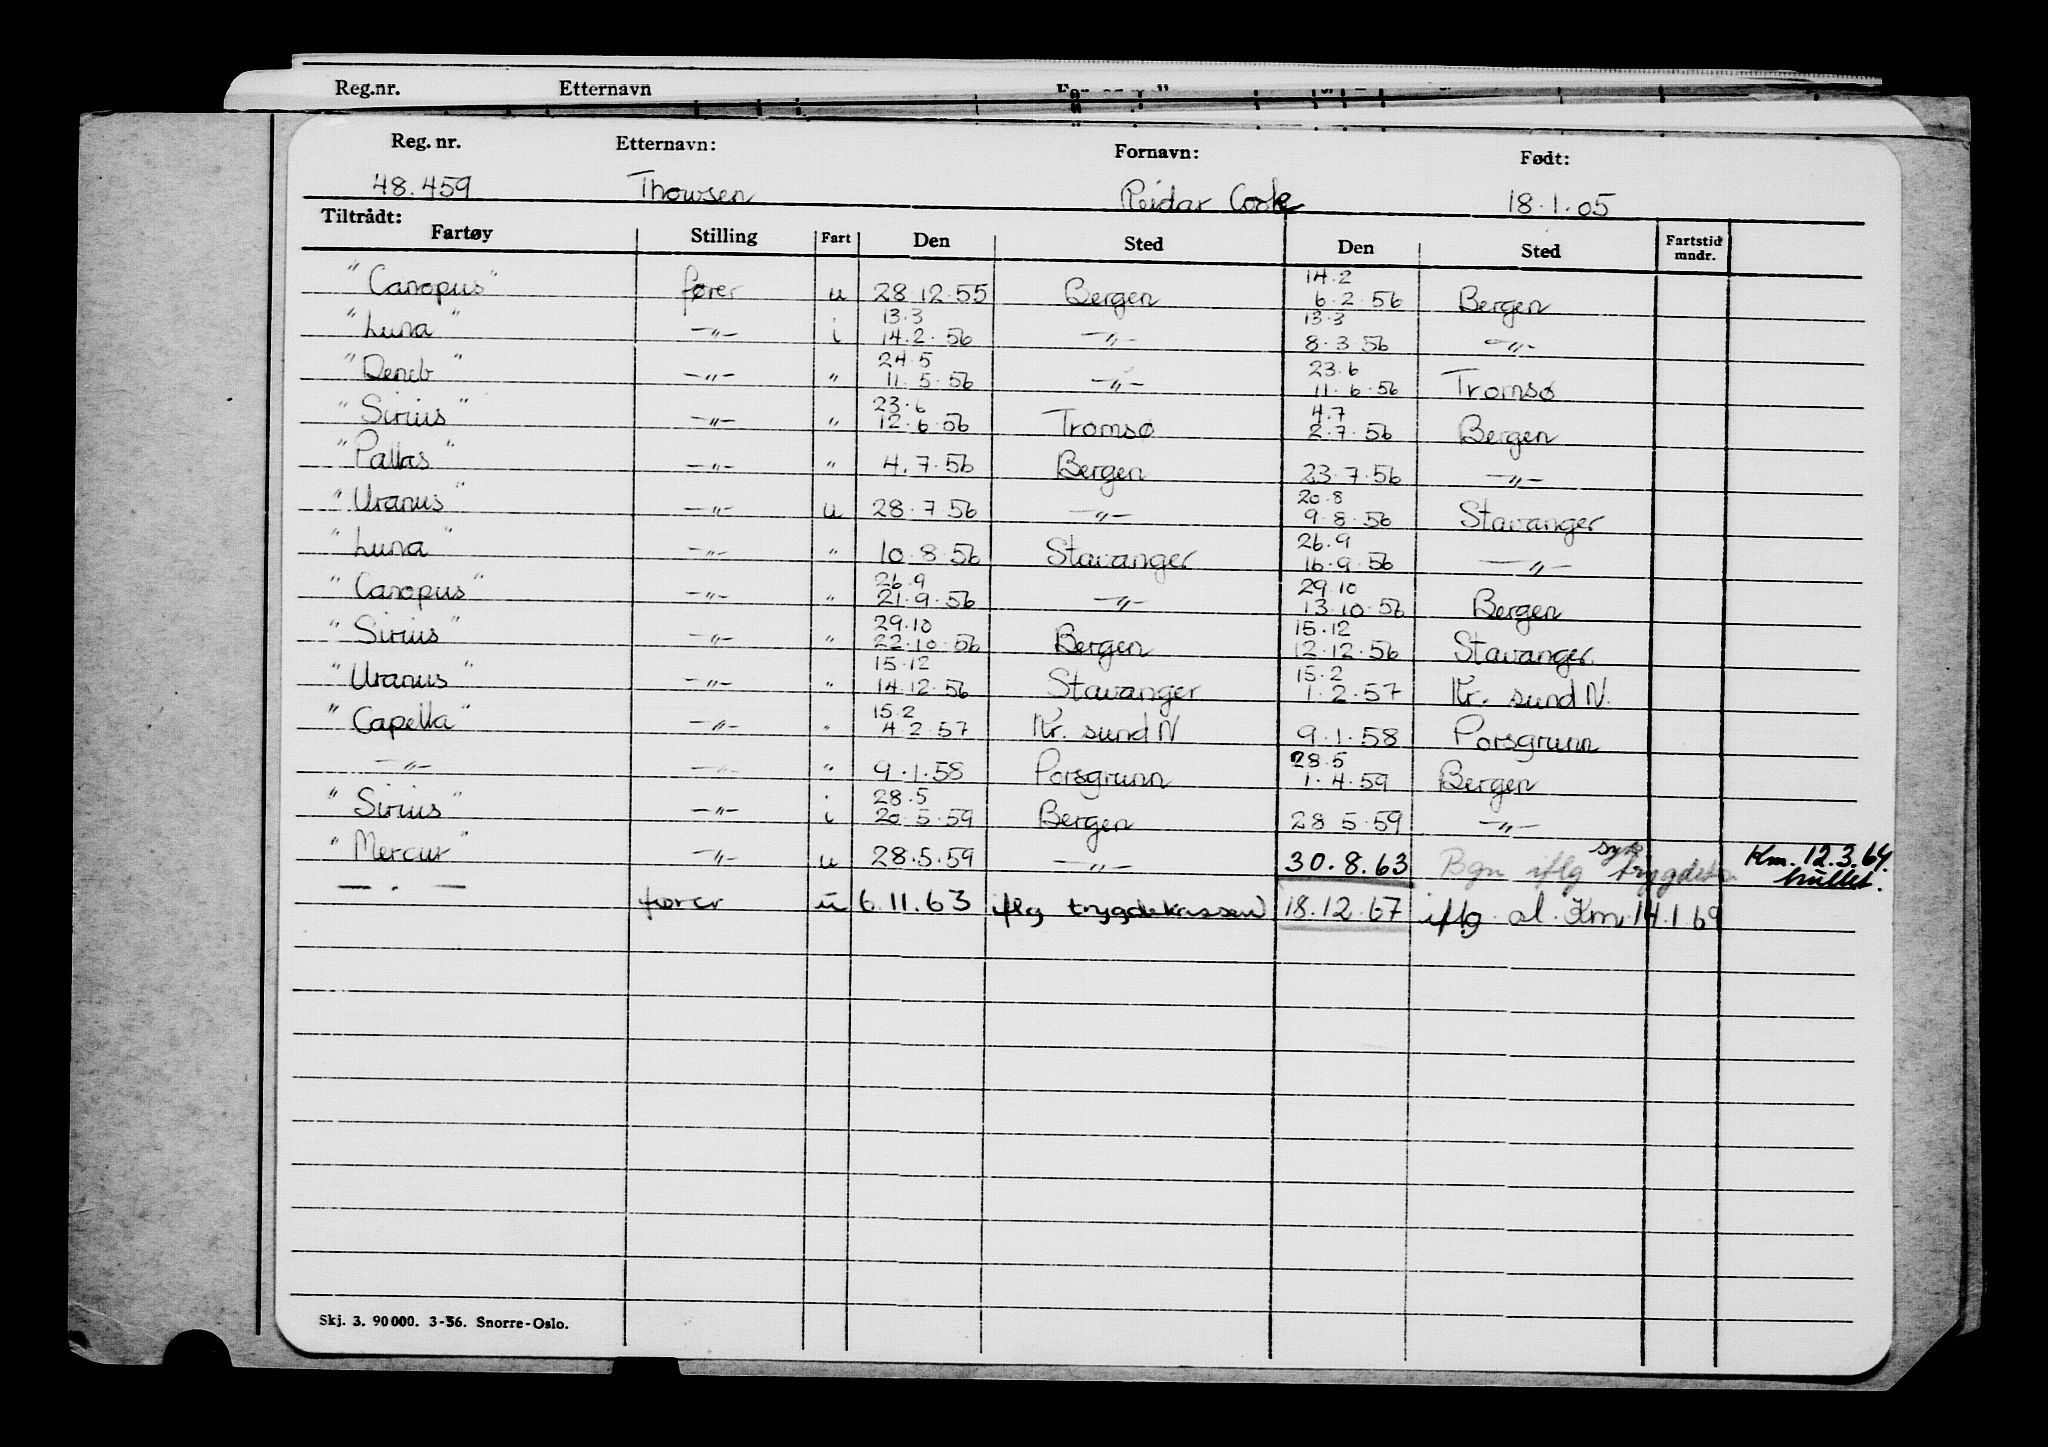 Reg.nr. Etternavn
Reg. nr. Etternavn: Fornavn: Født:
48.459 Thowsen Reidar Cook 18.1.05
Tiltrådt:
Fartøy Stilling Fart Den Sted Den Sted Fartstid mndr.
14.2
"Canopus" fører u 28.12.55 Bergen 6.2.56 Bergen
13.3 13.3
"Luna" -"- i 14.2.56 -"- 8.3.56 -"-
24.5 23.6
"Deneb" -"- " 11.5.56 -"- 11.6.56 Tromsø
23.6 4.7
"Sirius" -"- " 12.6.56 Tromsø 2.7.56 Bergen
"Pallas" -"- " 4.7.56 Bergen 23.7.56 -"-
20.8
"Uranus" -"- u 28.7.56 -"- 9.8.56 Stavanger
26.9
"Luna" -"- " 10.8.56 Stavanger 16.9.56 -"-
26.9 29.10
"Canopus" -"- " 21.9.56 -"- 13.10.56 Bergen
29.10 15.12
"Sirius" -"- " 22.10.56 Bergen 12.12.56 Stavanger
15.12 15.2
"Uranus" -"- " 14.12.56 Stavanger 1.2.57 Kr. sund N.
15.2
"Capella" -"- " 4.2.57 Kr. sund N 9.1.58 Porsgrunn
28.5
-"- -"- " 9.1.58 Porsgrunn 1.4.59 Bergen
28.5
"Sirius" -"- i 20.5.59 Bergen 28.5.59 -"-
"Mercur" -"- u 28.5.59 -"- 30.8.63 Bgn iflg syke trygdek. Km. 12.3.64. hullet.
— . — fører u 6.11.63 iflg trygdekassen 18.12.67 iflg. al. Km. 14.1.69
Skj. 3. 90000. 3-56. Snorre-Oslo.